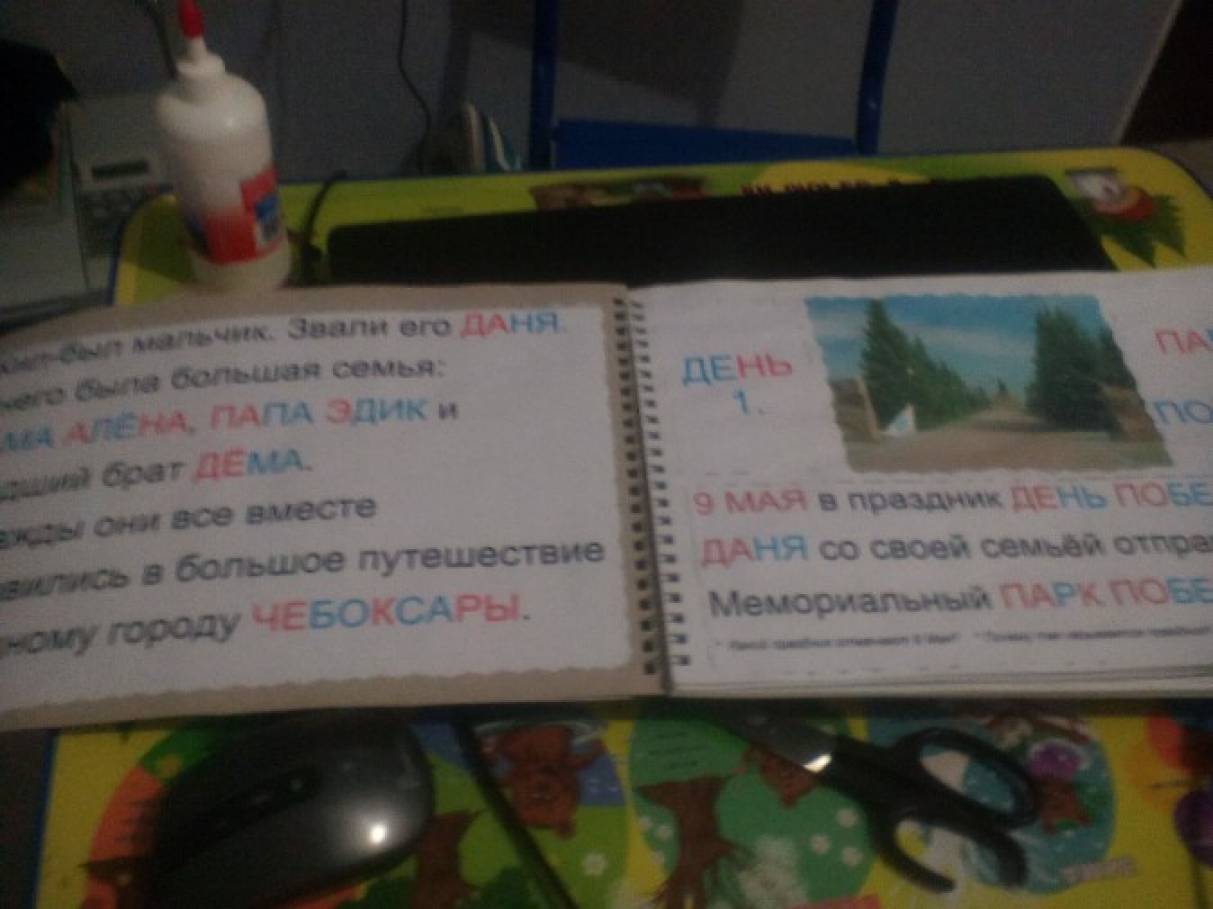 жил-был мальчик. Звали его ДАНЯ.
него была большая семья:
МА АЛЁНА, ПАПА ЭДИК и
брат ДЁМА.
они все вместе
в большое путешествие
ному городу ЧЕБОКСАРЫ.
ДЕНЬ
1.
ПА
ПО
9 МАЯ в праздник ДЕНЬ ПОБЕ
ДАНЯ со своей семьёй отпра
Мемориальный ПАРК ПОБЕ